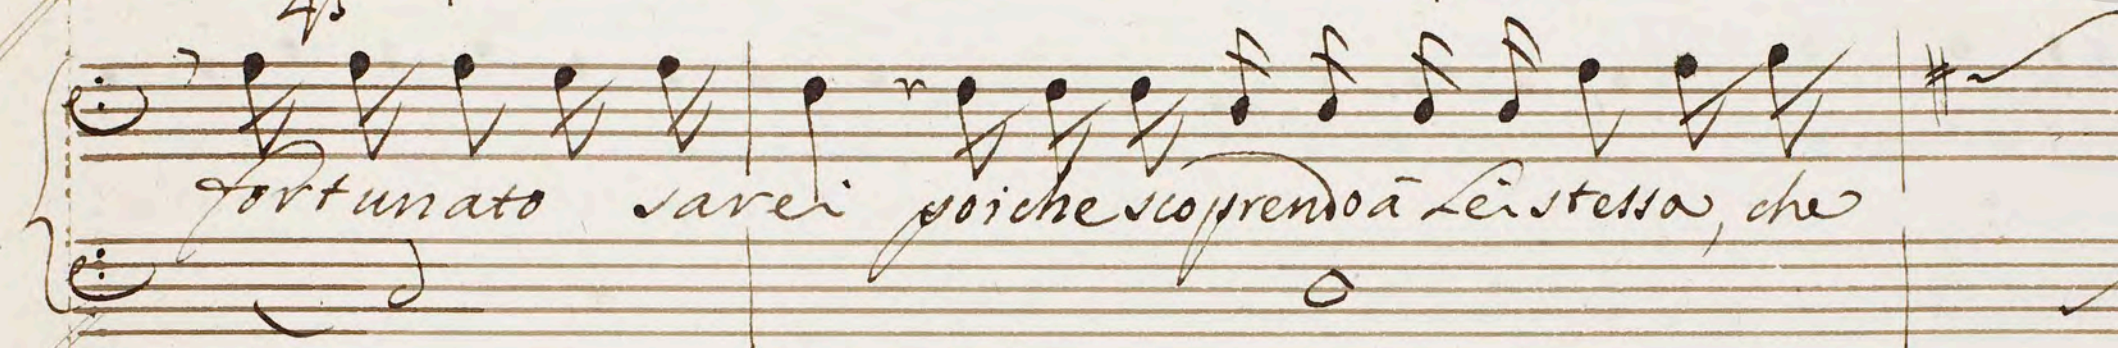 fortunato sarei poiche scoprendo à Lei stessa, che